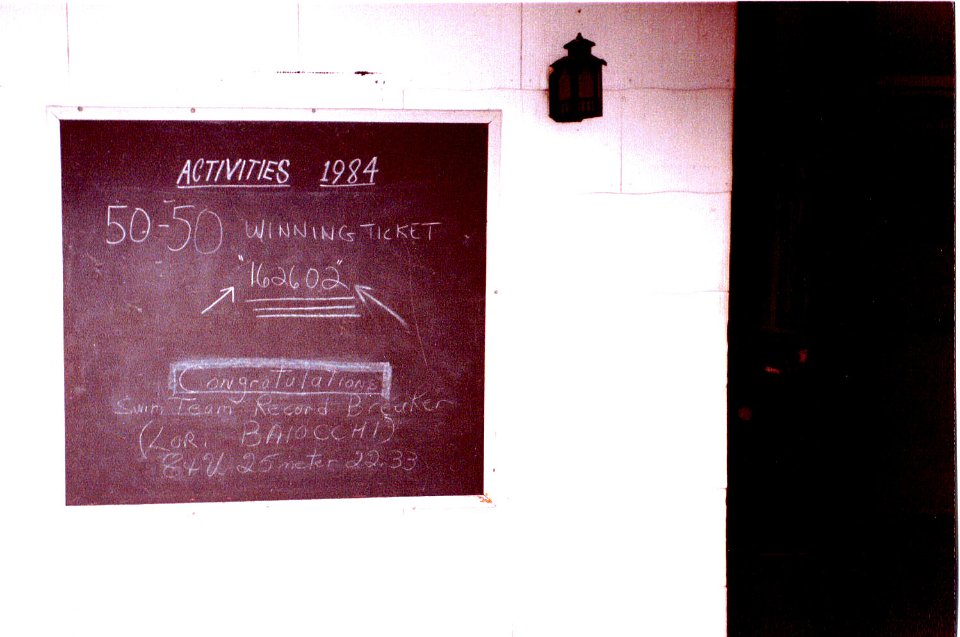 ACTIVITIES 1984
50-50 WINNING TICKET
"162602"
Congratulations
Swim Team Record Breaker
(LORI BAIOCCHI)
8+U 25 meter 22.33